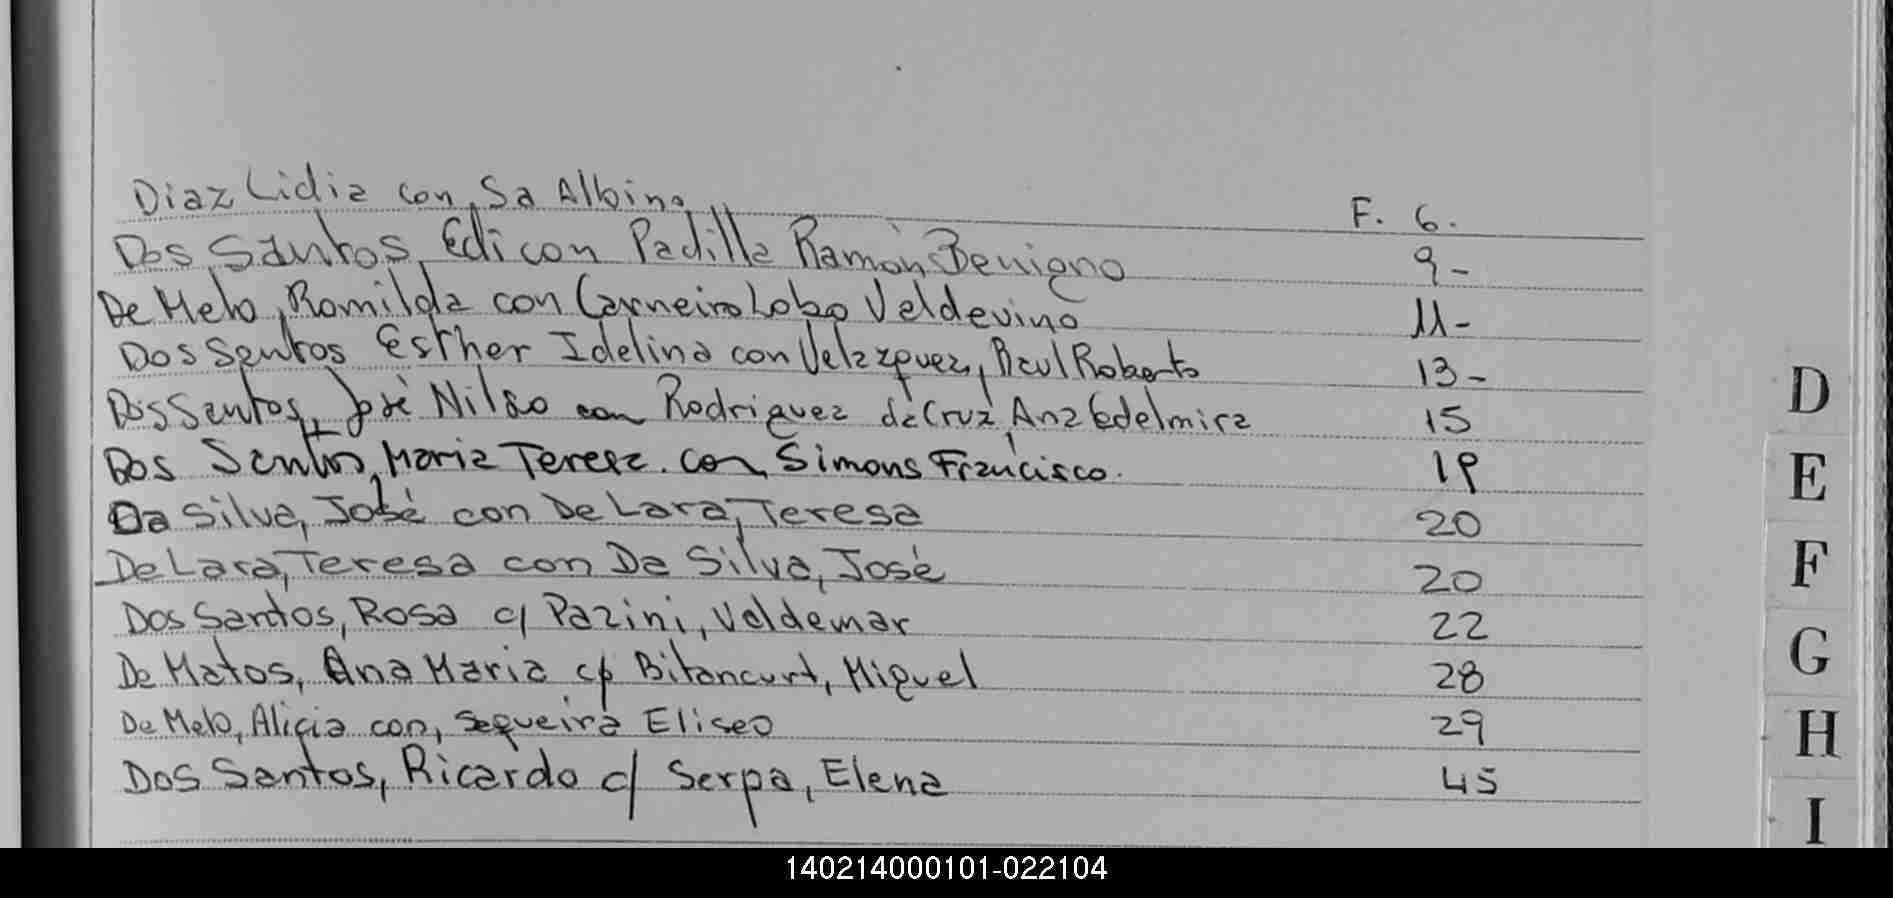 Diaz Lidia con Sa Albino F. 6.
Dos Santos, Edi con Padilla Ramón Benigno 9-
De Melo, Romilda con Carneiro Lobo Valdevino 11-
Dos Santos Esther Idelina con Velazquez, Raul Roberto 13-
Dos Santos, José Nilso con Rodriguez da Cruz Ana Edelmira 15
Dos Santos, Maria Teresa. con Simons Francisco. 19
Da Silva, José con De Lara, Teresa 20
De Lara, Teresa con Da Silva, José 20
Dos Santos, Rosa c/ Pazini, Valdemar 22
De Matos, Ana Maria c/ Bitancurt, Miguel 28
De Melo, Alicia con, Sequeira Eliseo 29
Dos Santos, Ricardo c/ Serpa, Elena 45
D
E
F
G
H
I
140214000101-022104